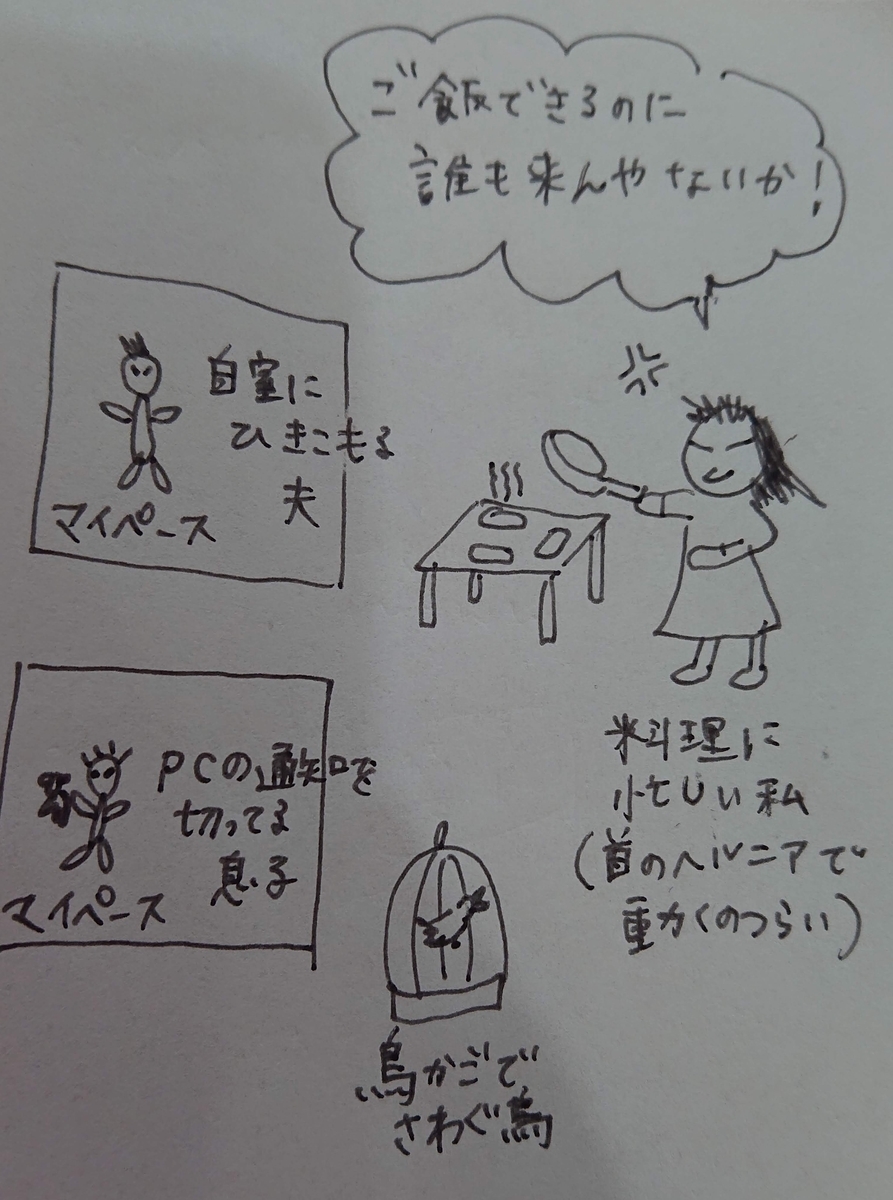 ご飯できるのに
誰も来んやないか!
自室に
ひきこもる
夫
マイペース
PCの通知を
切ってる
息子
マイペース
料理に
忙しい私
(首のヘルニアで
動くのつらい)
鳥かごで
さわぐ鳥